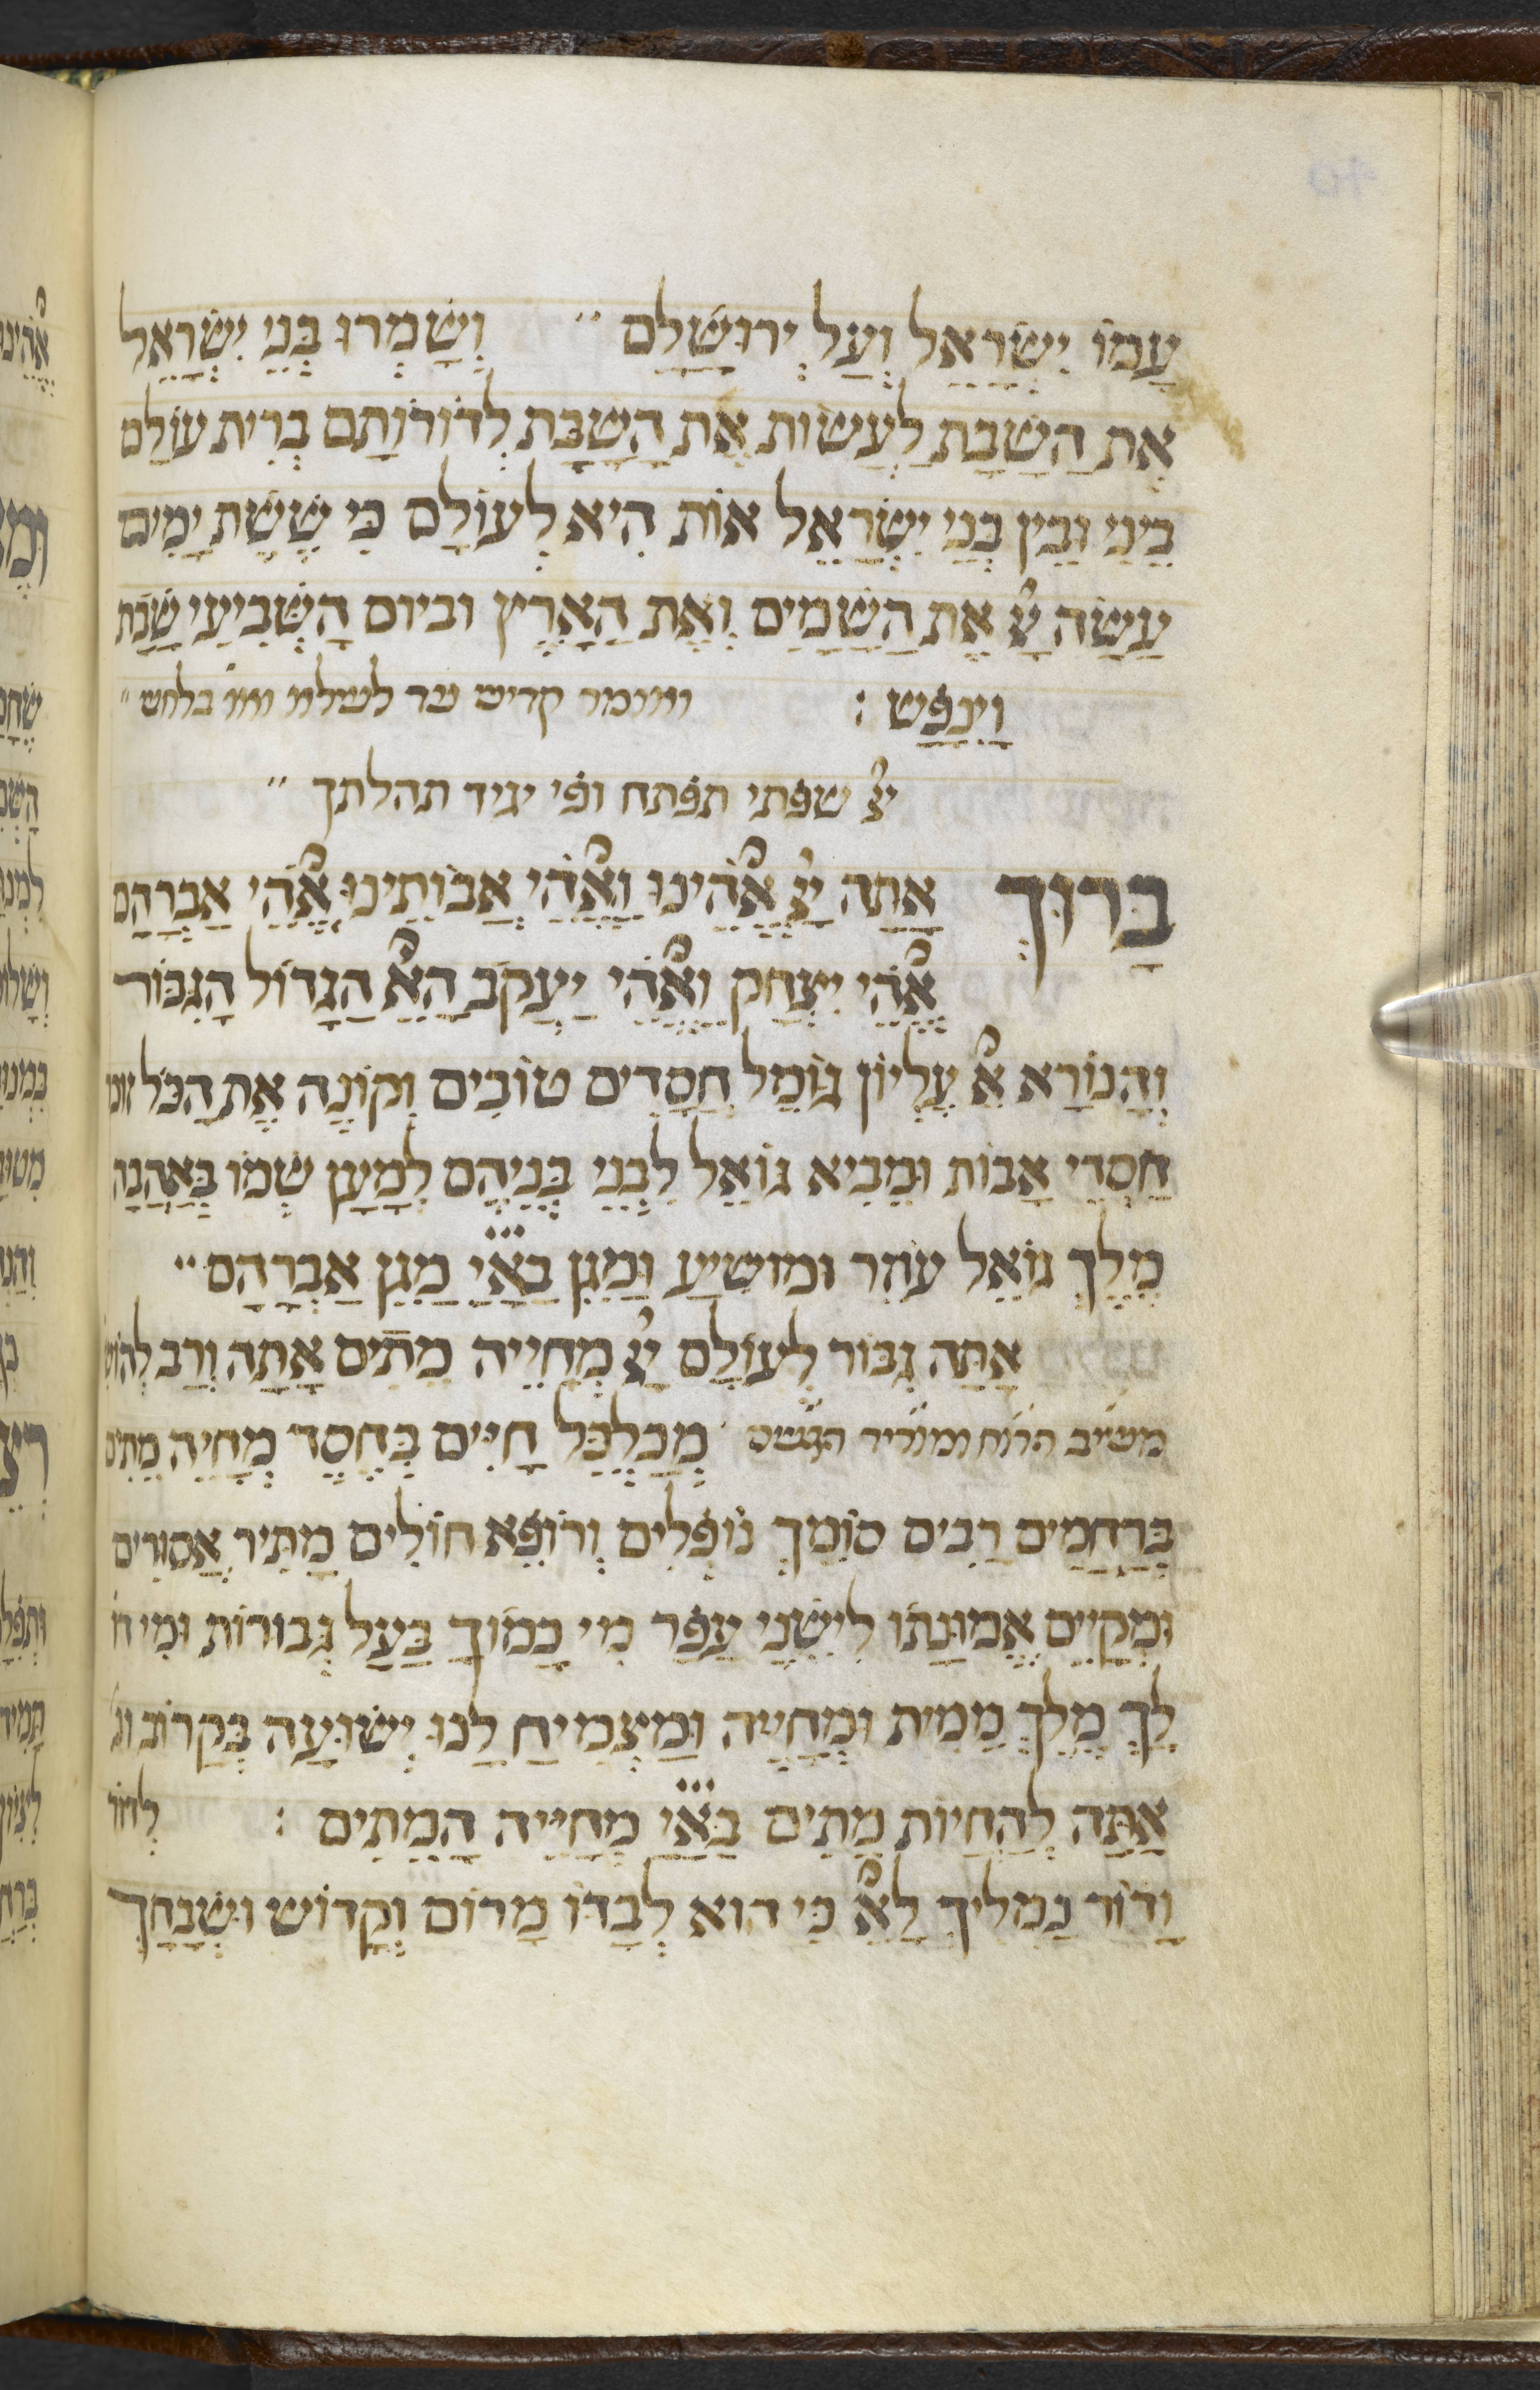 עַמוֹ יִשְׂרָאֵל וְעַל יְרוּשָׁלַם " וְשָׁמְרוּ בְּנֵי יִשְׂרָאֵל
אֶת הַשַׁבָּת לַעֲשׂוֹת אֶת הַשַׁבָּת לְדוֹרוֹתָם בְּרִית עוֹלָם
בֵּינִי וּבֵין בְּנֵי יִשְׂרָאֵל אוֹת הִיא לְעוֹלָם כִּי שֵׁשֶׁת יָמִים
עָשָׂה יְיָ אֶת הַשָׁמַיִם וְאֶת הָאָרֶץ וביום הַשְׁבִיעִי שָׁבַת
וַיִנָפַשׁ : ואומר קדיש עד לעילא בלחש "
יְיָ שפתי תפתח ופי יגיד תהלתך "
בָּרוּךְ אַתָּה יְיָ אֱלֹהֵינוּ וֵאלֹהֵי אֲבוֹתֵינוּ אֱלֹהֵי אַבְרָהָם
אֱלֹהֵי יִצְחָק וֵאלֹהֵי יַעֲקֹב הָאֵל הַגָדוֹל הַגִבּוֹר
וְהַנוֹרָא אֵל עֶלְיוֹן גּוֹמֵל חֲסָדִים טוֹבִים וְקוֹנֶה אֶת הַכֹּל זוכר
חַסְדֵי אָבוֹת וּמֵבִיא גּוֹאֵל לִבְנֵי בְנֵיהֶם לְמַעַן שְׁמוֹ בְּאַהֲבָה
מֶלֶךְ גּוֹאֵל עוֹזֵר ומושִׁיעַ וּמָגֵן בָּאַ֗יְ מָגֵן אַבְרָהָם "
אַתָּה גִבּוֹר לְעוֹלָם יְיָ מְחַיֵיה מֵתִים אַתָּה וְרַב לְהוֹשׁ
משיב הרוח ומוריד הגשם ֹ מְכַלְכֵּל חַיִים בְּחֶסֶד מְחַיֵה מֵתִים
בְּרַחֲמִים רַבִים סוֹמֵךְ נוֹפְלִים וְרוֹפֵא חוֹלִים מַתִּיר אֲסוּרִים
וּמְקַיֵים אֱמוּנָתוֹ לִישֵׁנֵי עָפָר מִי כָמוֹךָ בַּעַל גְּבוּרוֹת וּמִי ד
לָךְ מֶלֶךְ מֵמִית וּמְחַיֵיה וּמַצְמִיחַ לָנוּ יְשׁוּעָה בְּקָרוֹב ונ
אַתָּה לְהַחֲיוֹת מֵתִים בָּאַ֗יְ מְחַיֵיה הַמֵתִים : לְדוֹר
וָדוֹר נַמְלִיךְ לָאֵל כִּי הוּא לְבַדוֹ מָרוֹם וְקָדוֹשׁ וְשִׁבְחֲךָ